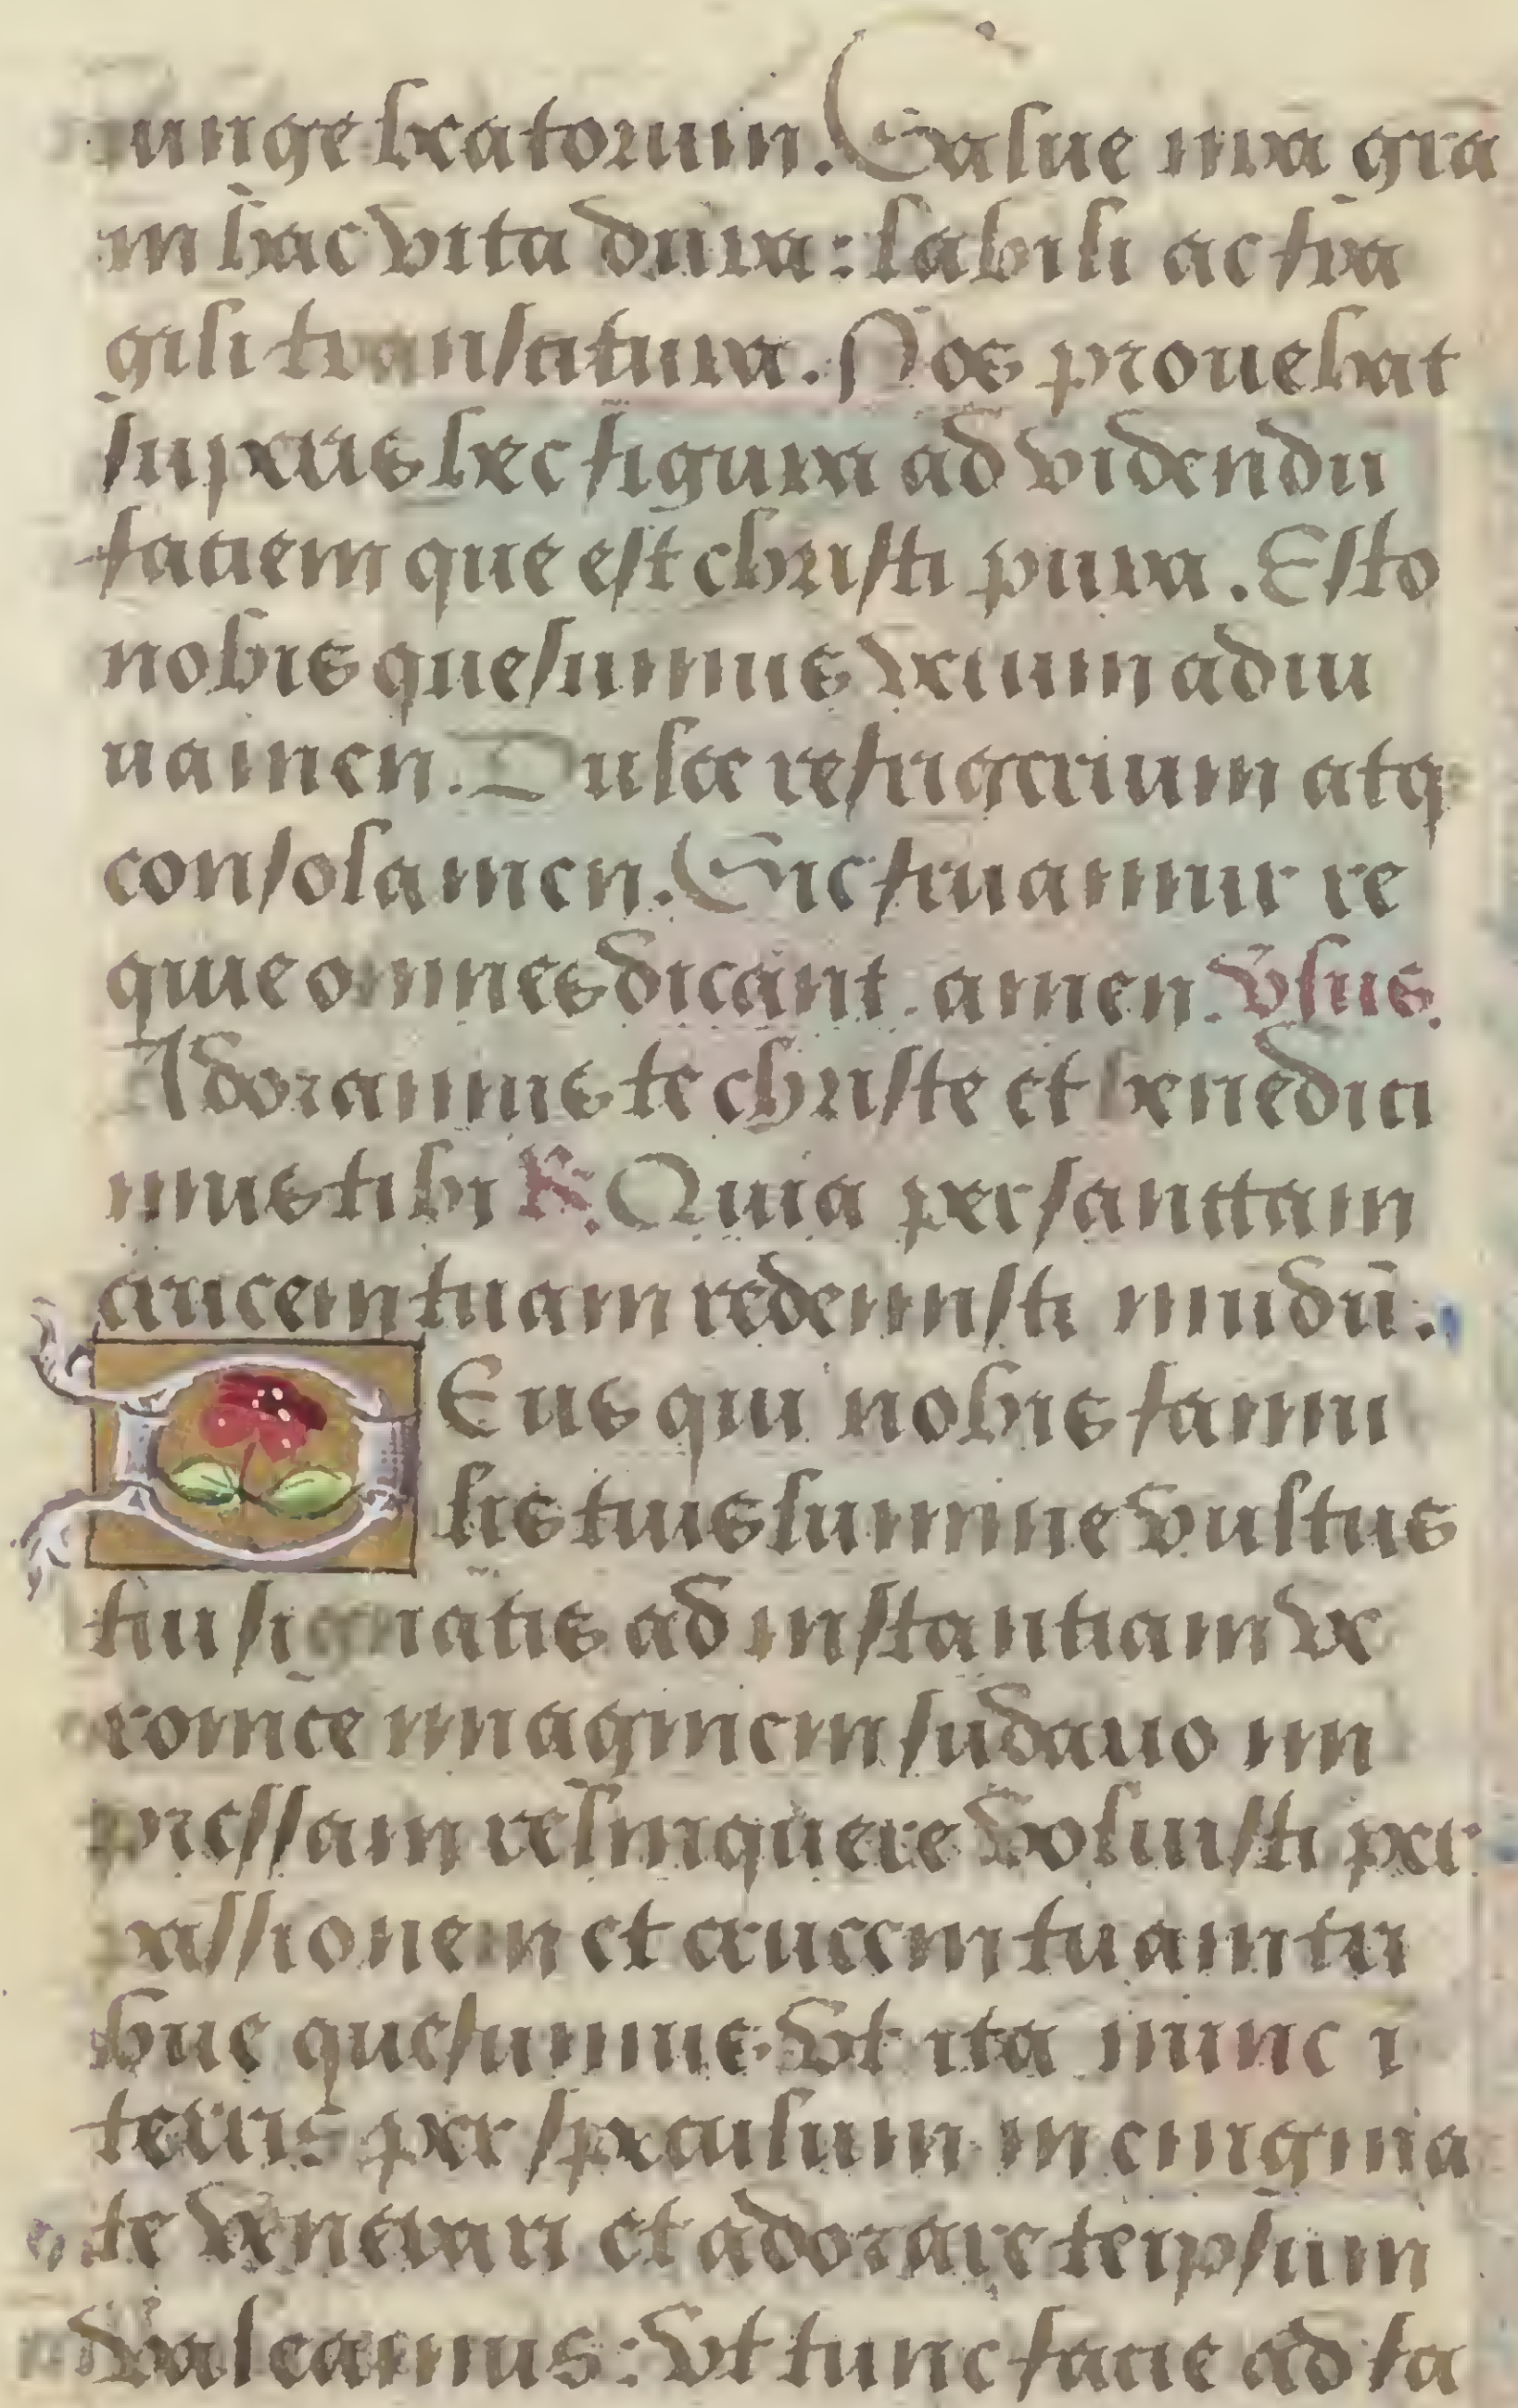 iunge beatorum. Salue nr̄a gl̄ia
in hac vita dura: labili ac fra
gili transitura. Nos prouehat
superis hec figura ad videndū
faciem que est christi pura. Esto
nobis quesumus verum adiu
uamen. Dulce refrigerium atq
consolamen. Sic fruamur re
quie omnes dicant. amen. v̄sus.
Adoramus te christe et benedici
mus tibi R. Quia per sanctam
crucem tuam redemisti mūdū.
Eus qui nobis famu
lis tuis lumine vultus
tui signatis ad instantiam ve
ronice imaginem sudario im
pressam relinquere voluisti per
passionem et crucem tuam tri
bue quesumus. Vt ita nunc ī
terris per speculum in enigma
te venerari et adorare teipsum
valeamus: vt tunc facie ad fa